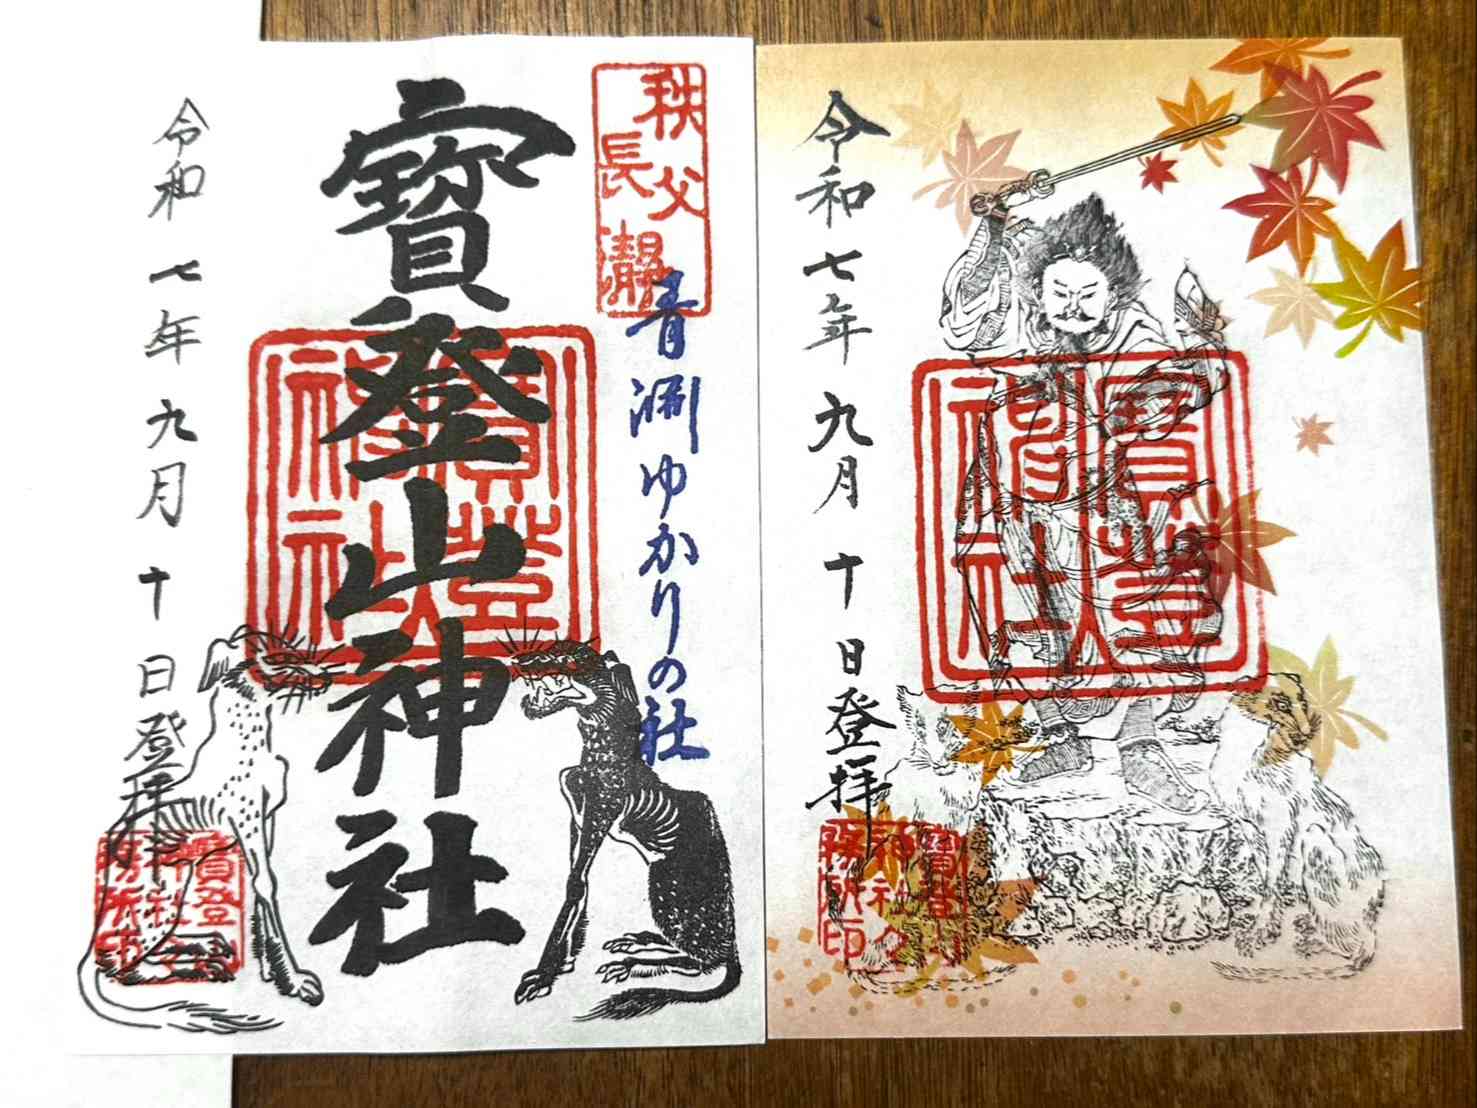 秩父
長瀞
青淵ゆかりの社
寳登山神社
寳登
山神
社
令和七年九月十日登拝
寳登山
神社社
務所印
令和七年九月十日登拝
寳登
山神
社
寳登山
神社社
務所印